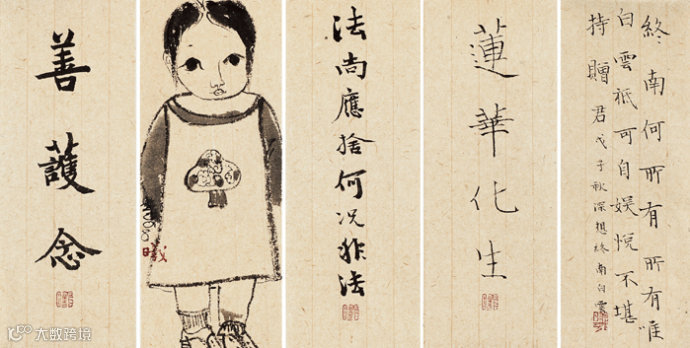 善護念
曦
法尚應捨何况非法
蓮華化生
終南何所有所有唯
白雲祇可自娱悦不堪
持贈君戊子秋深想終南白雲
大数跨境